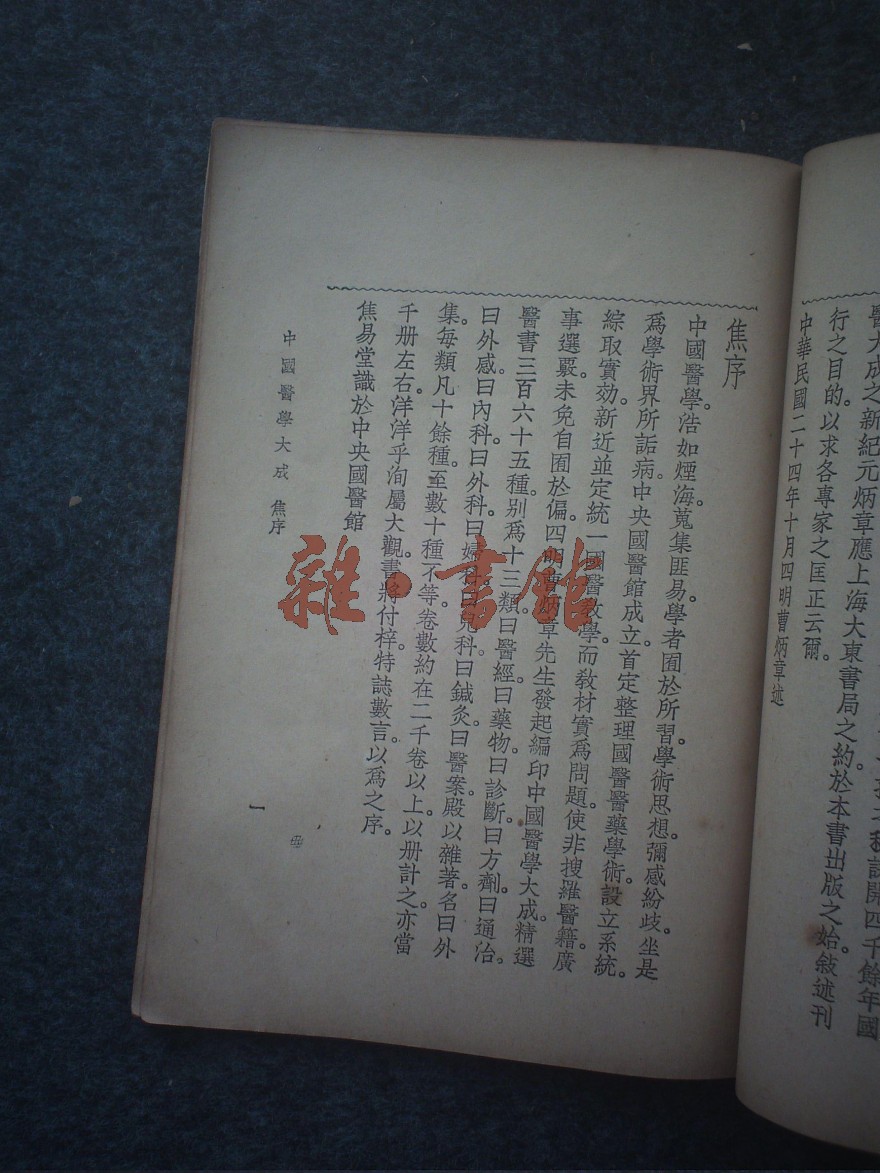 醫大成之新紀元炳章應上海大東書局之約。於本書出版之始敍述刊
行之目的。以求各專家之匡正云爾。
中華民國二十四年十月四明曹炳章述
焦序
中國醫學。浩如煙海。蒐集匪易。學者囿於所習。學術思想。彌感紛歧。坐是
爲學術界所詬病。中央國醫館成立。首定整理國醫醫藥學術。設立系統。
綜取實効。新近並定統一國醫敎學。而敎材實爲問題。使非搜羅醫籍。廣
事選覈。未免自囿於偏。四明曹炳章先生發起編印中國醫學大成。精選
醫書三百六十五種。別爲十三類。曰醫經曰藥物。曰診斷。曰方劑。曰通治。
曰外感。曰內科。曰外科。曰婦科。曰兒科。曰鍼灸。曰醫案。殿以雜著。名曰外
集。每類凡十餘種。至數十種不等。卷數約在二千卷以上。以册計之。亦當
千册左右。洋洋乎洵屬大觀。書將付梓。特誌數言。以爲之序。
焦易堂識於中央國醫館
中國醫學大成 焦序
一
雜·書館